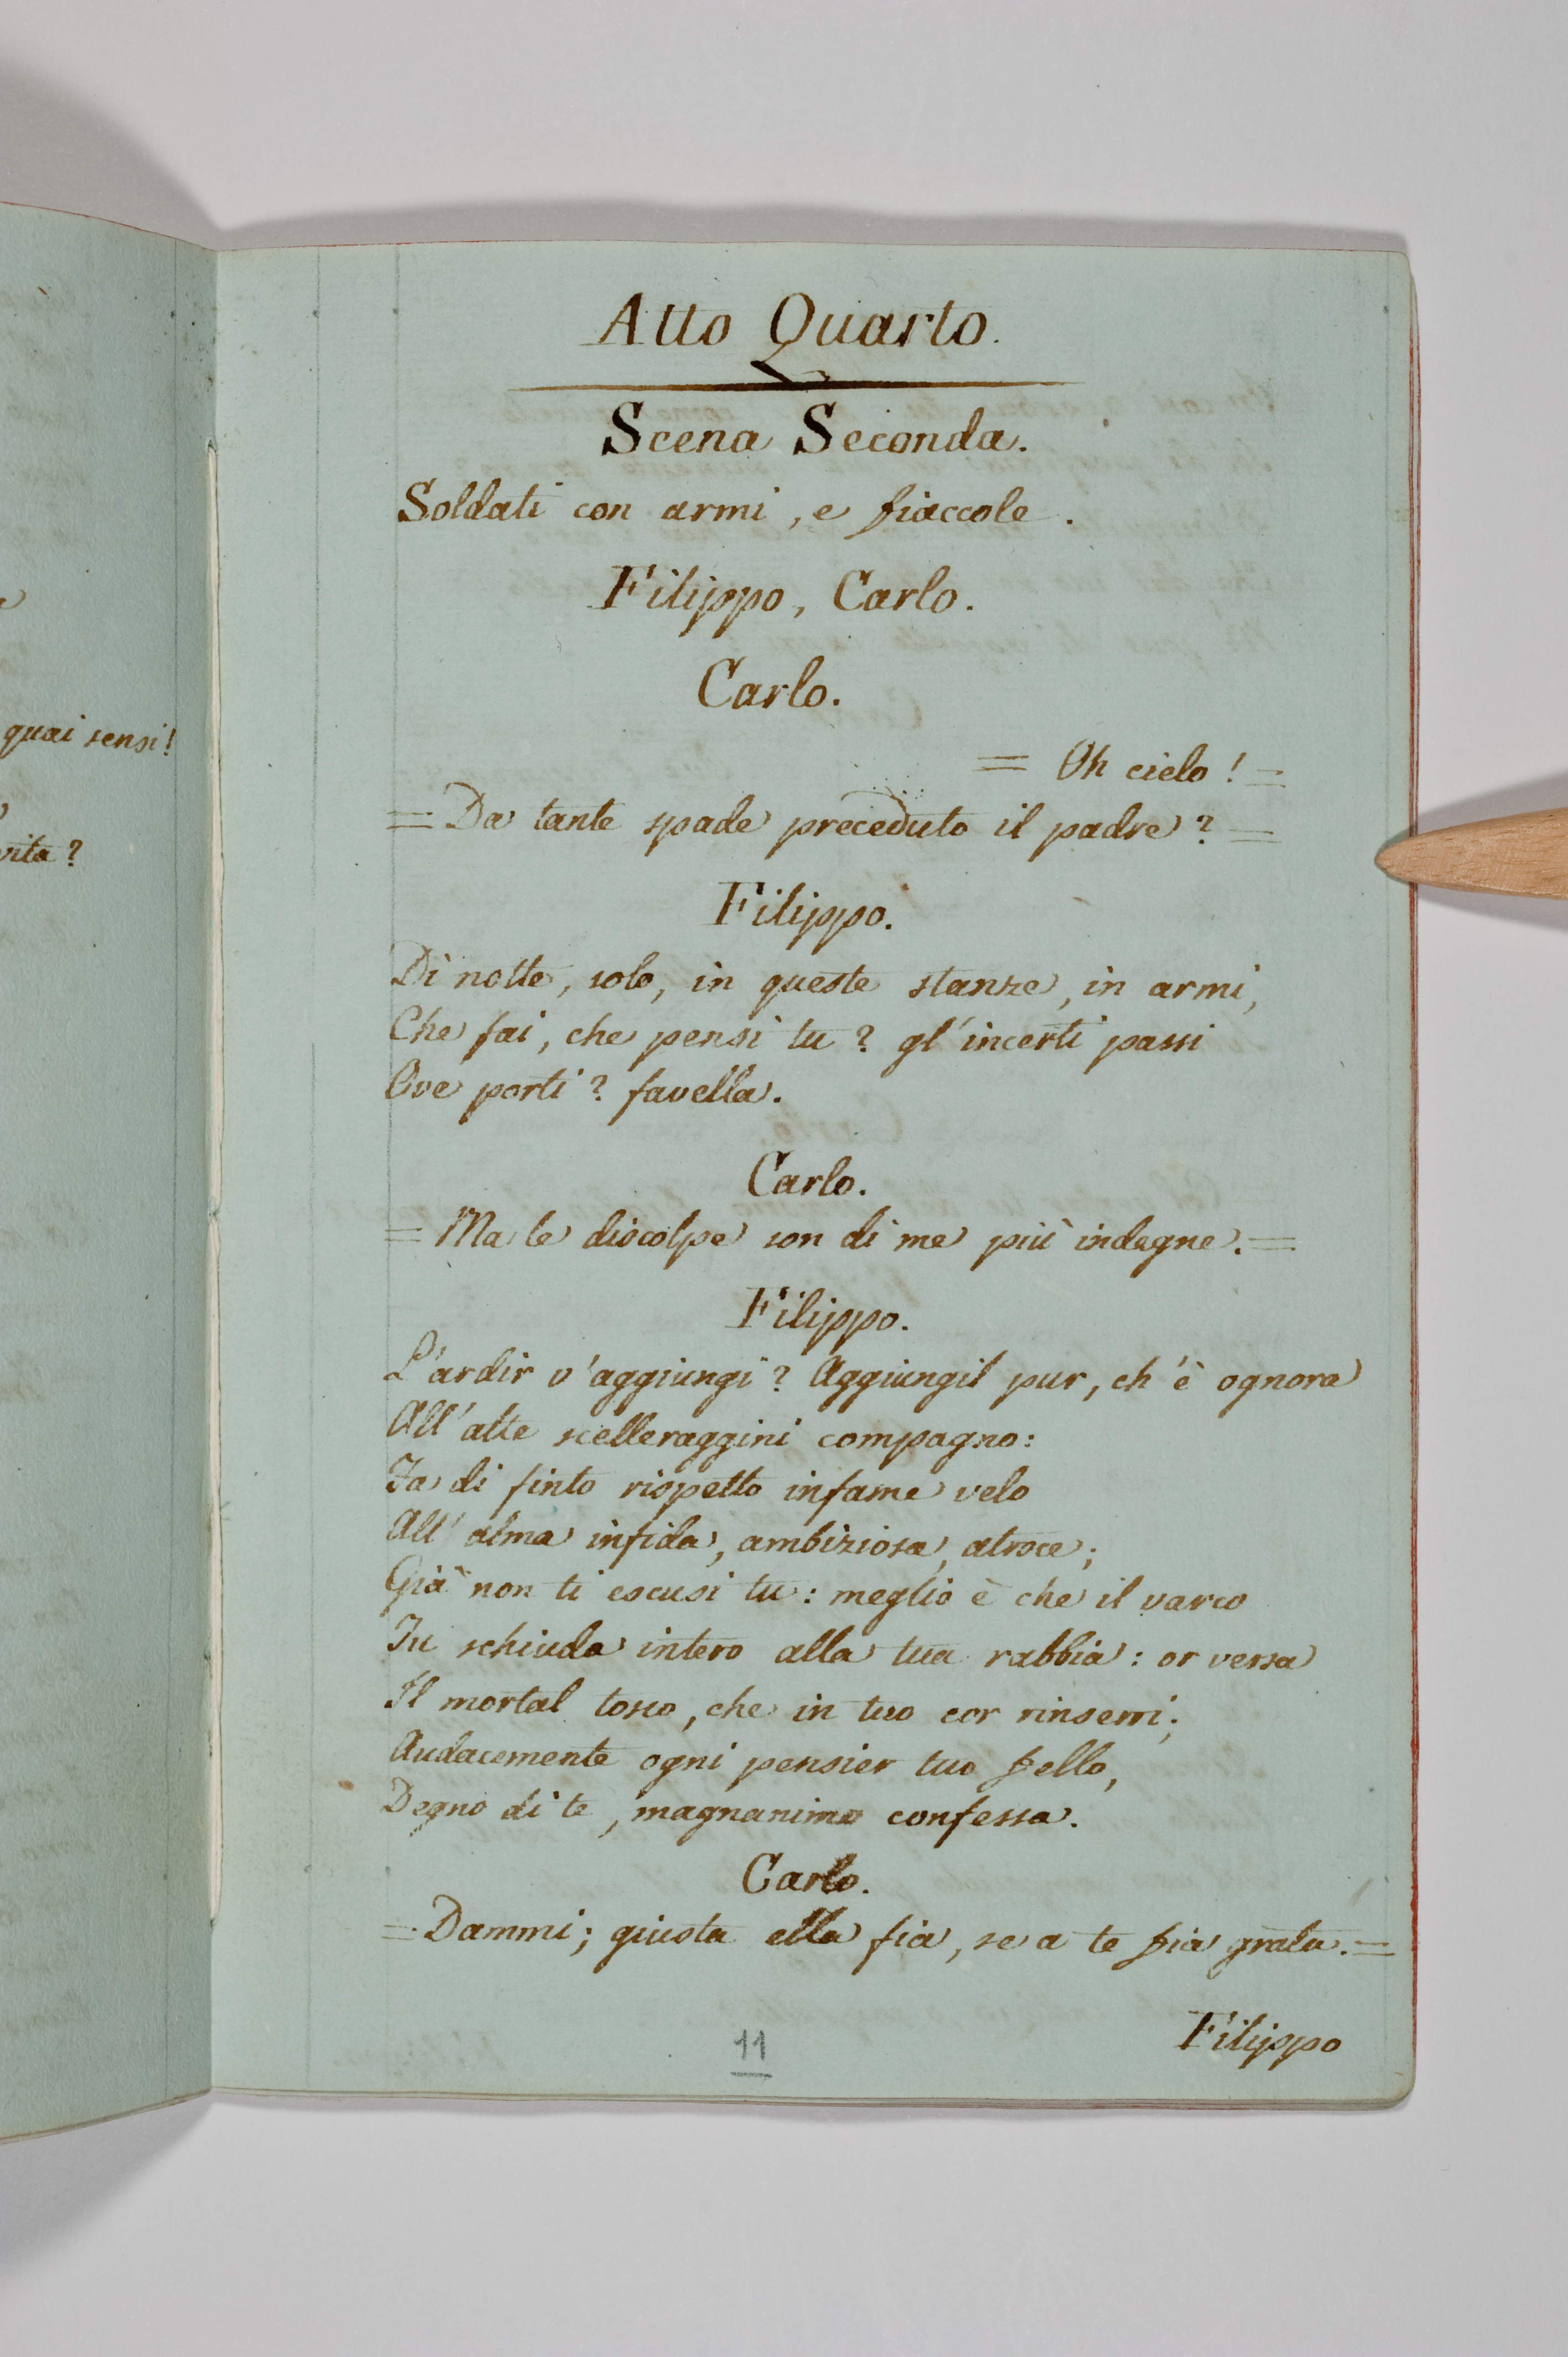 quai sensi!
vita?
Atto Quarto.
Scena Seconda.
Soldati con armi, e fiaccole.
Filippo, Carlo.
Carlo.
= Oh cielo! =
= Da tante spade preceduto il padre? =
Filippo.
Di notte, solo, in queste stanze, in armi,
Che fai, che pensi tu? gl'incerti passi
Ove porti? favella.
Carlo.
= Ma le discolpe son di me più indegne. =
Filippo.
L'ardir v'aggiungi? Aggiungil pur, ch'è ognora
All'alte scelleraggini compagno:
Fa di finto rispetto infame velo
All'alma infida, ambiziosa, atroce;
Già non ti escusi tu: meglio è che il varco
Tu schiuda intero alla tua rabbia: or versa
Il mortal tosco, che in tuo cor rinserri;
Audacemente ogni pensier tuo fello,
Degno di te, magnanimo confessa.
Carlo.
= Dammi; giusta ella fia, se a te fia grata. =
Filippo
11